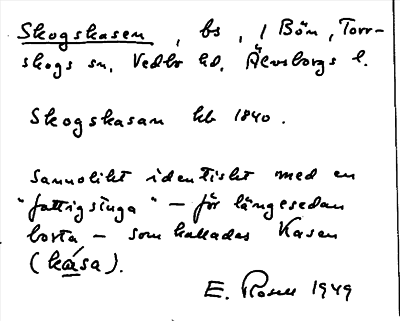 Skogskasen, bs, i Bön, Torr-
skogs sn, Vedbo hd, Älvsborgs l.
Skogskasan kb 1840.
Sannolikt identiskt med en
"fattigstuga" – för längesedan
borta – som kallades Kasen
(kása).
E. Rosell 1949